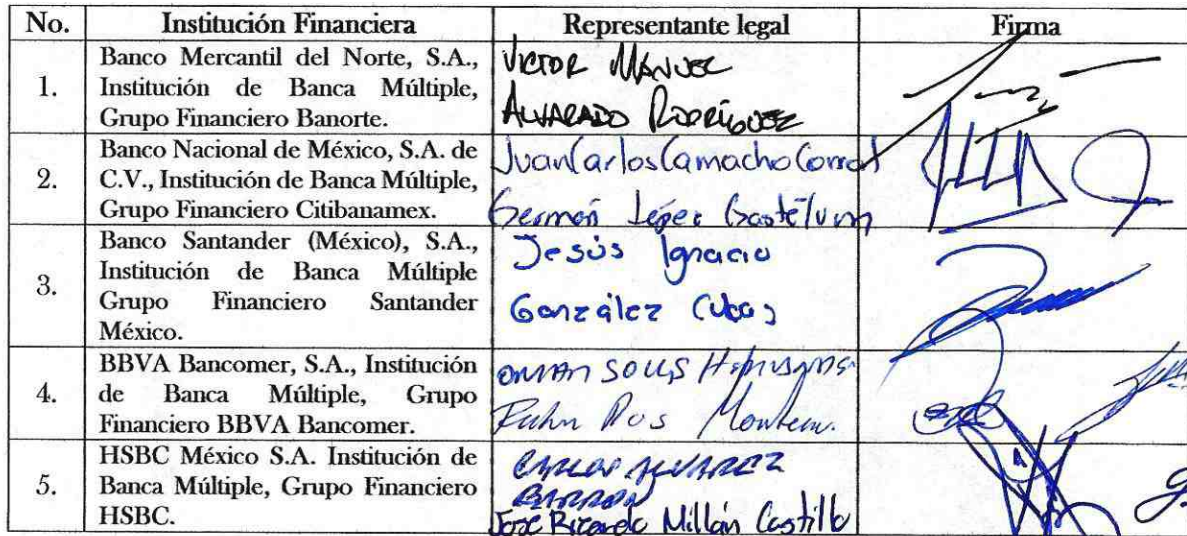 No. Institución Financiera Representante legal Firma
1. Banco Mercantil del Norte, S.A., Institución de Banca Múltiple, Grupo Financiero Banorte.
VICTOR MANUEL
ALVARADO RODRÍGUEZ
2. Banco Nacional de México, S.A. de C.V., Institución de Banca Múltiple, Grupo Financiero Citibanamex.
Juan Carlos Camacho
Germán López Gastélum
3. Banco Santander (México), S.A., Institución de Banca Múltiple Grupo Financiero Santander México.
Jesús Ignacio
González
4. BBVA Bancomer, S.A., Institución de Banca Múltiple, Grupo Financiero BBVA Bancomer.
5. HSBC México S.A. Institución de Banca Múltiple, Grupo Financiero HSBC.
CARLOS ALVAREZ
José Ricardo Millán Castillo